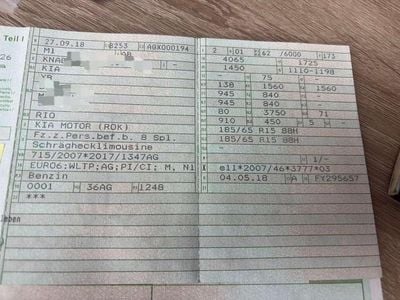 Teil I
26
27.09.18 8253 AGX000194
M1
KNA
KIA
RIO
KIA MOTOR (ROK)
Fz.z.Pers.bef.b. 8 Spl.
Schräghecklimousine
715/2007*2017/1347AG
EURO6;WLTP;AG;PI/CI; M, N1
Benzin
0001 36AG 1248
***
2 01 62 /6000 173
4065 1725
1450 1110-1198
- 75 -
138 1560 1560
945 840 -
945 840 -
80 3750 71
910 450 5 -
185/65 R15 88H
185/65 R15 88H
-
1/-
e11*2007/46*3777*03
04.05.18 A FY295657